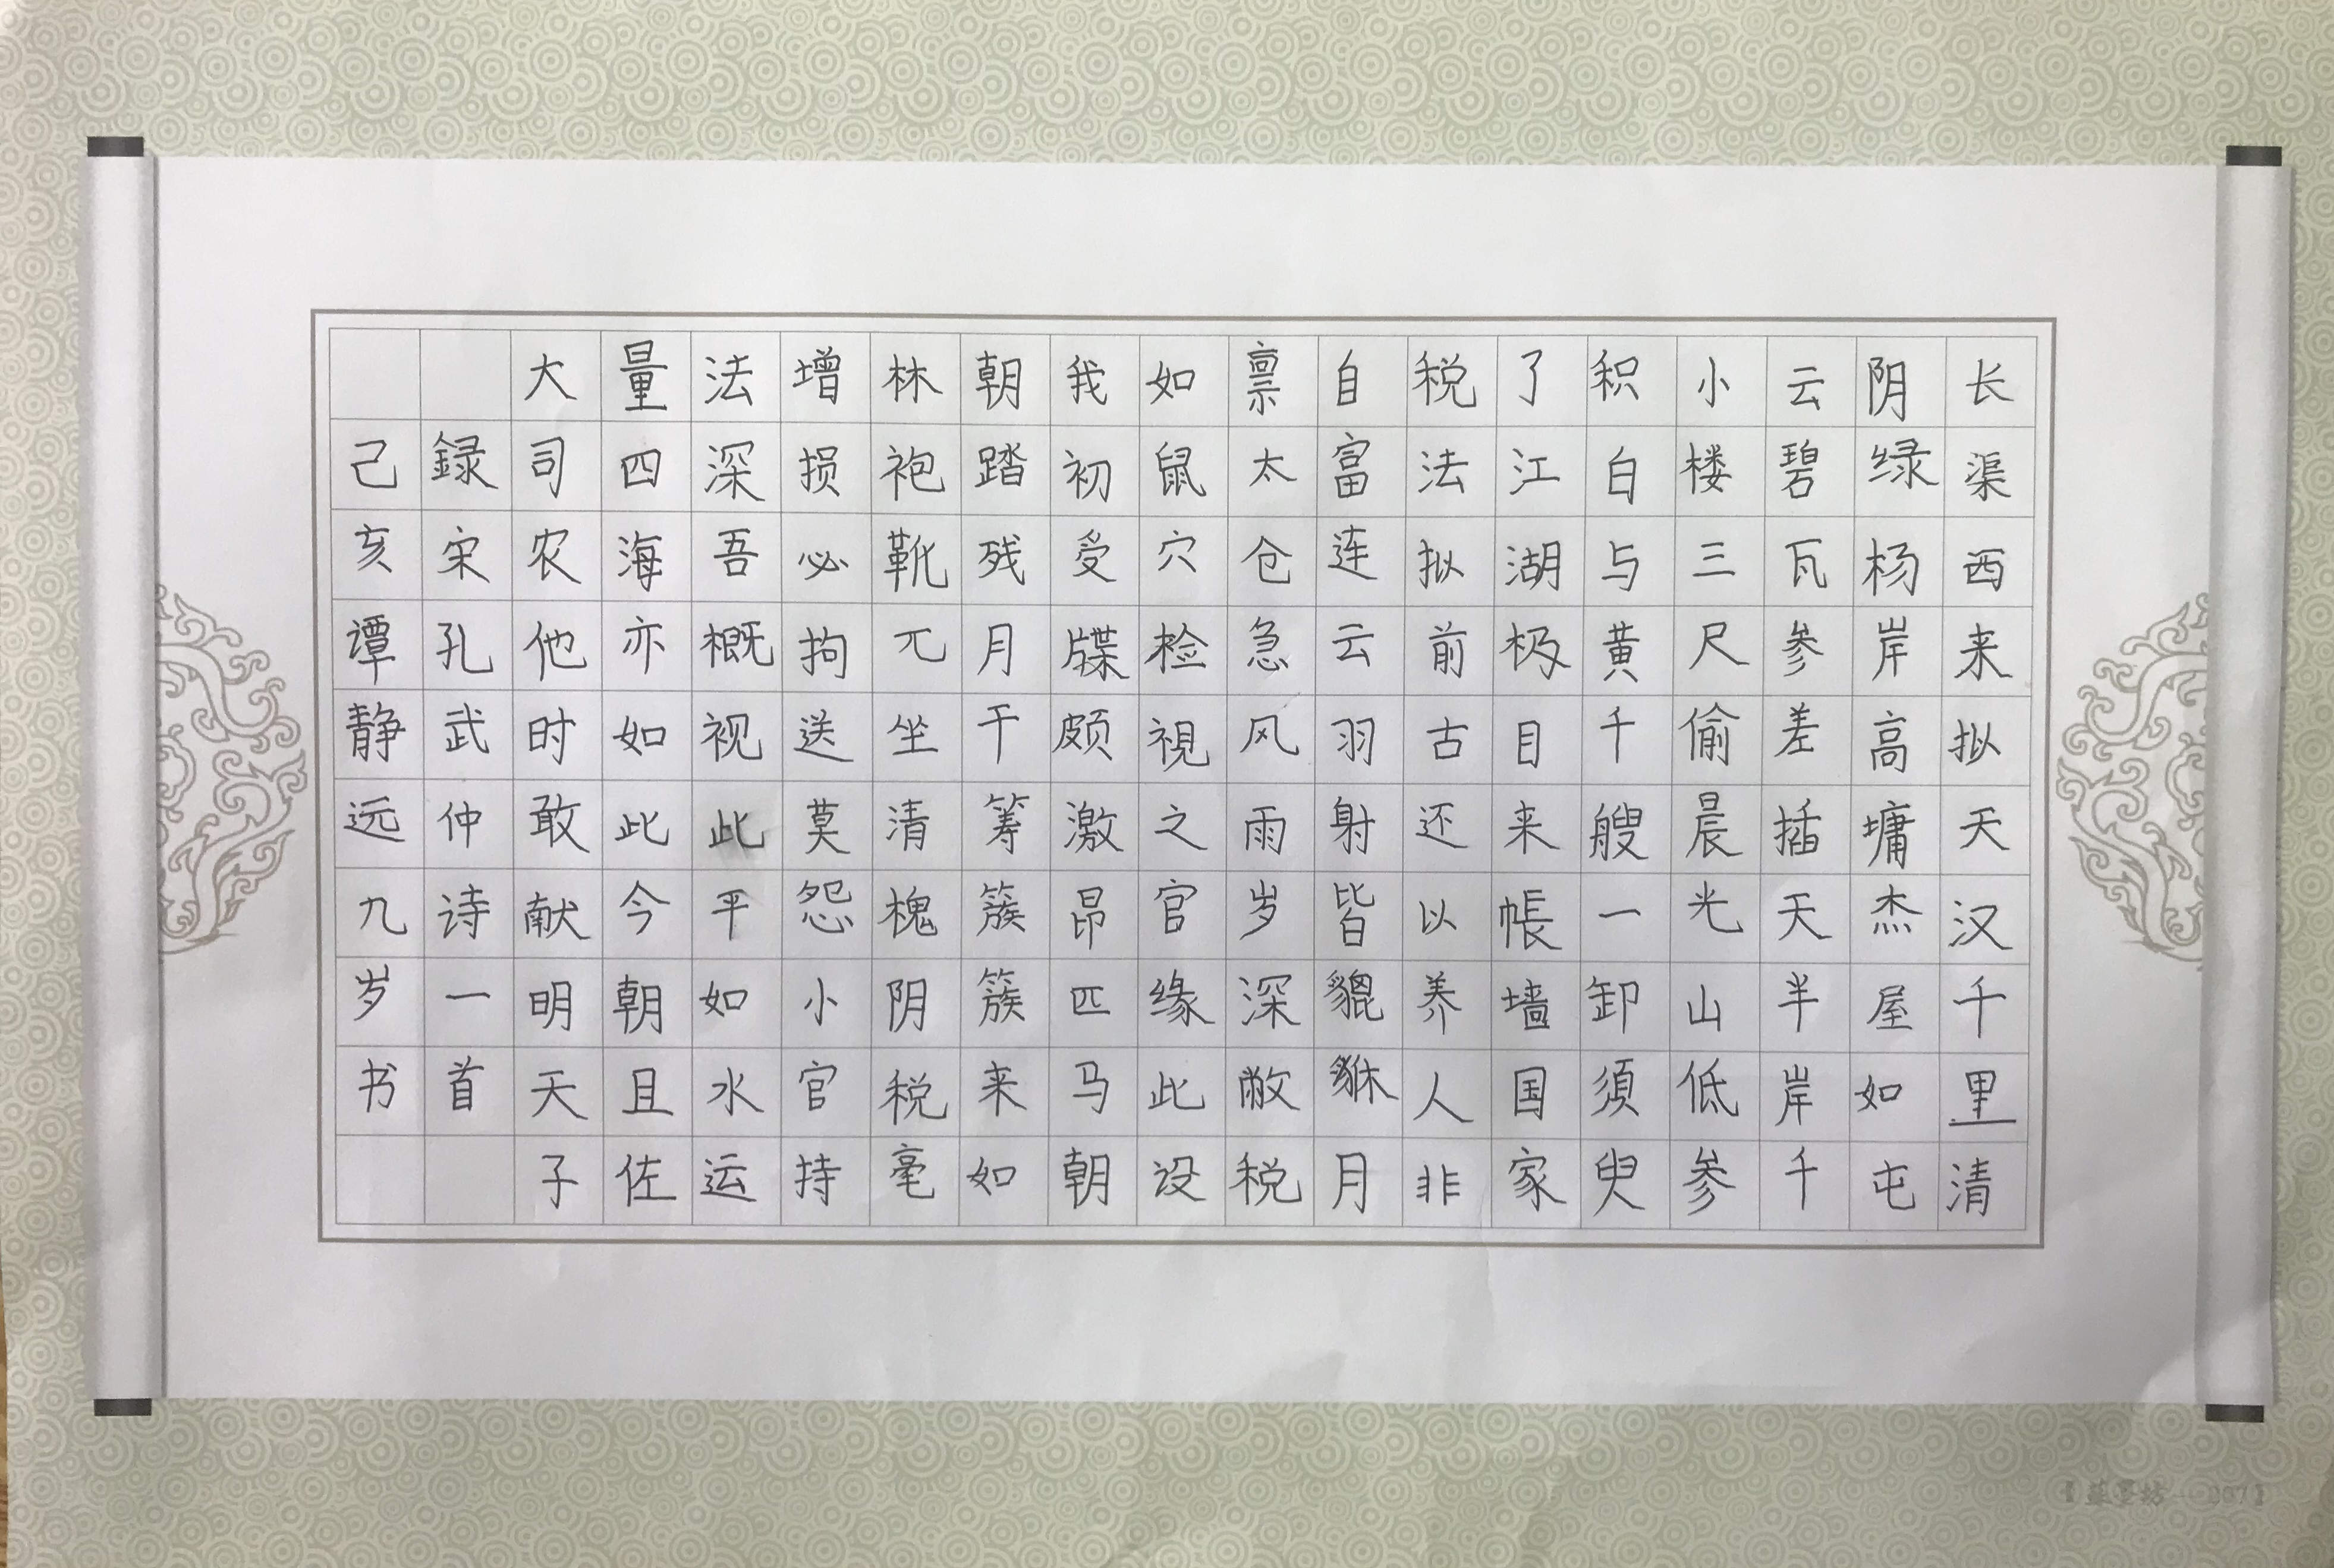 长渠西来拟天汉千里清
阴绿杨岸高墉杰屋如屯
云碧瓦参差插天半岸千
小楼三尺偷晨光山低参
积白与黄千艘一卸须臾
了江湖极目来帳墙国家
税法拟前古还以养人非
自富连云羽射皆貔貅月
禀太仓急风雨岁深敝税
如鼠穴检視之官缘此设
我初受牒颇激昂匹马朝
朝踏残月干筹簇簇来如
林袍靴兀坐清槐阴税毫
增损必拘送莫怨小官持
法深吾概视此平如水运
量四海亦如此今朝且佐
大司农他时敢献明天子
録宋孔武仲诗一首
己亥谭静远九岁书